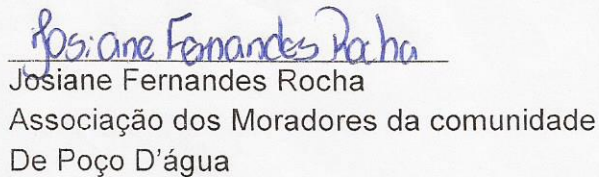 Josiane Fernandes Rocha
Josiane Fernandes Rocha
Associação dos Moradores da comunidade
De Poço D'água